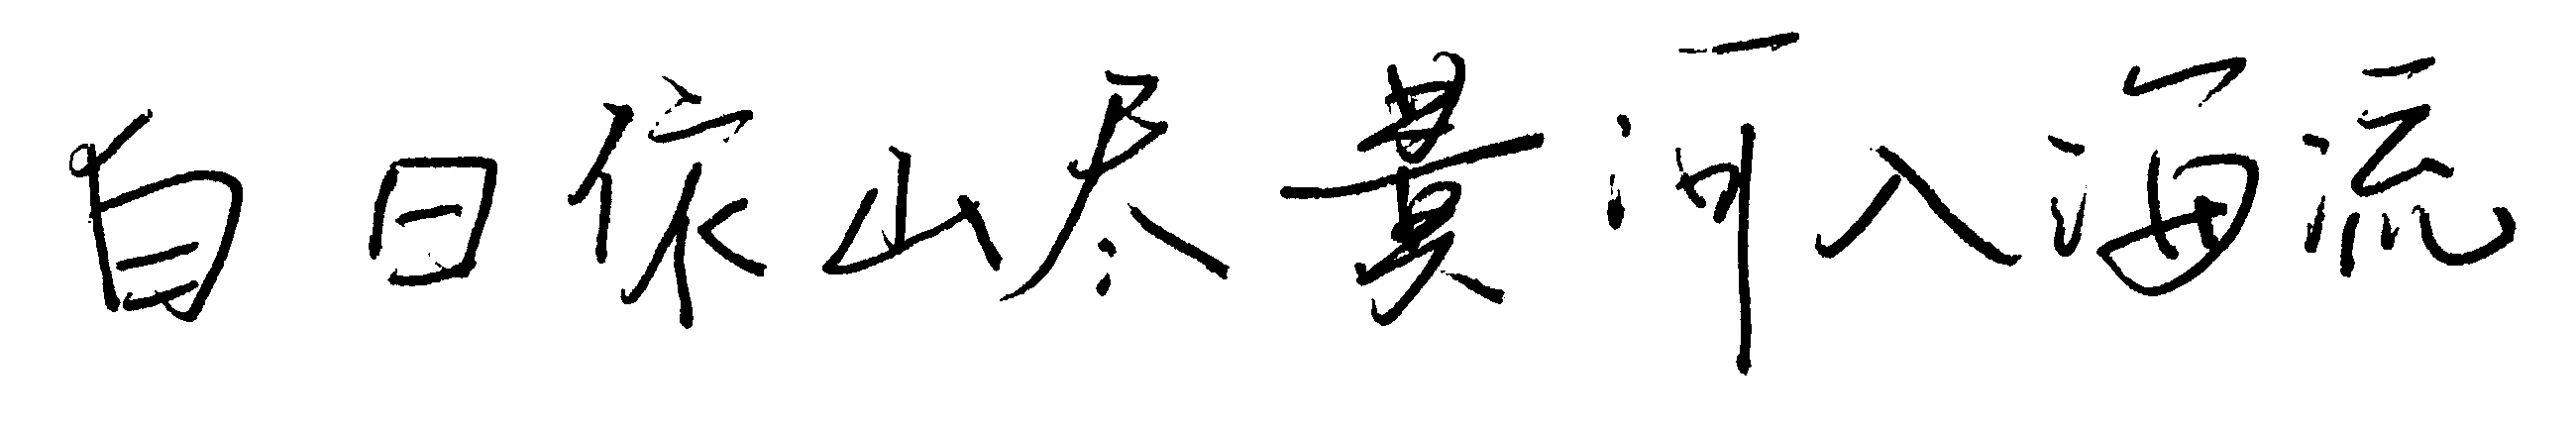 白日依山尽黄河入海流